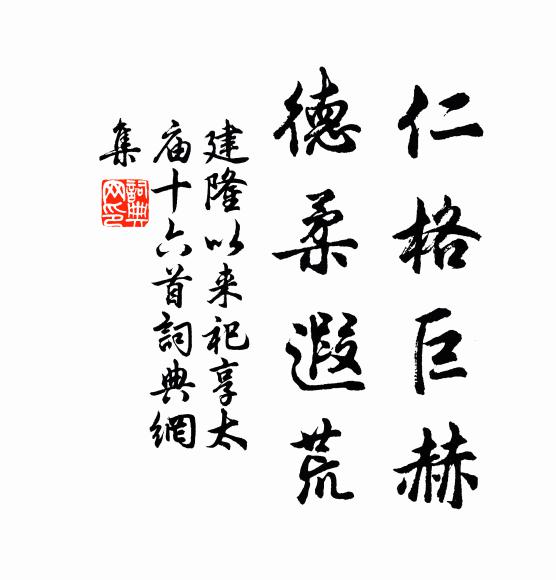 仁格巨赫
德柔遐荒
建隆以来祀享太
庙十六首詞典網
集
詞典
网印